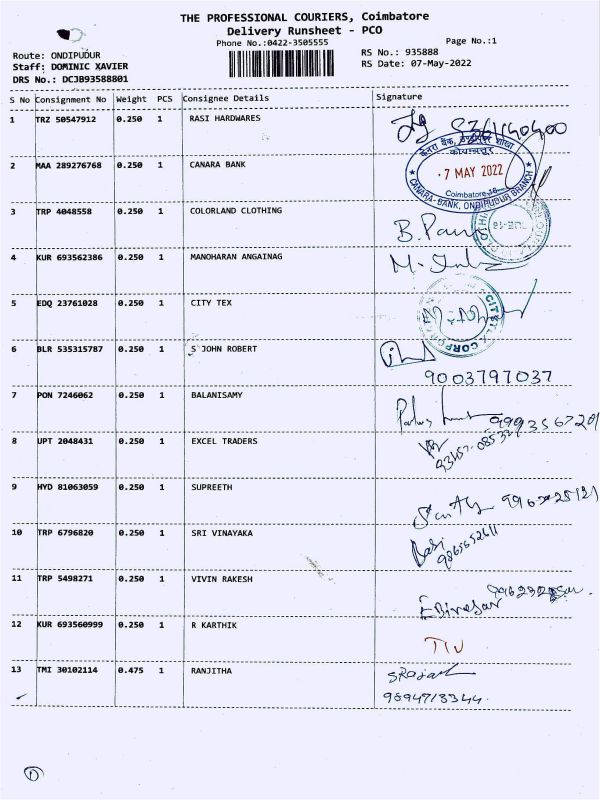 THE PROFESSIONAL COURIERS, Coimbatore
Delivery Runsheet - PCO
Phone No.:0422-3505555
Page No.:1
Route: ONDIPUDUR
RS No.: 935888
Staff: DOMINIC XAVIER
RS Date: 07-May-2022
DRS No.: DCJB93588801
S No Consignment No Weight PCS Consignee Details Signature
1 TRZ 50547912 0.250 1 RASI HARDWARES
2 MAA 289276768 0.250 1 CANARA BANK
7 MAY 2022
Coimbatore
CANARA BANK, ONDIPUDUR BRANCH
3 TRP 4048558 0.250 1 COLORLAND CLOTHING
4 KUR 693562386 0.250 1 MANOHARAN ANGAINAG
5 EDQ 23761028 0.250 1 CITY TEX
6 BLR 535315787 0.250 1 S JOHN ROBERT
9003797037
7 PON 7246062 0.250 1 BALANISAMY
8 UPT 2048431 0.250 1 EXCEL TRADERS
9 HYD 81063059 0.250 1 SUPREETH
10 TRP 6796820 0.250 1 SRI VINAYAKA
11 TRP 5498271 0.250 1 VIVIN RAKESH
12 KUR 693560999 0.250 1 R KARTHIK
13 TMI 30102114 0.475 1 RANJITHA
9894713344